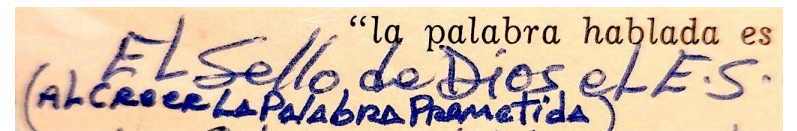 “la palabra hablada es
EL Sello de Dios el E.S.
(AL Creer La Palabra Prometida)